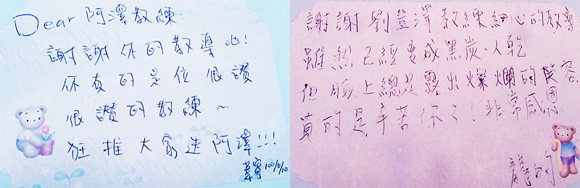 Dear 阿澤教練
謝謝你的教導心!
你真的是位很讚
很讚的教練~
狂推大家迷阿澤!!!
100/8/10
謝謝劉登澤教練細心的教導
雖然已經變成黑炭人乾
但臉上總是露出燦爛的笑容
真的是辛苦你了!非常感謝